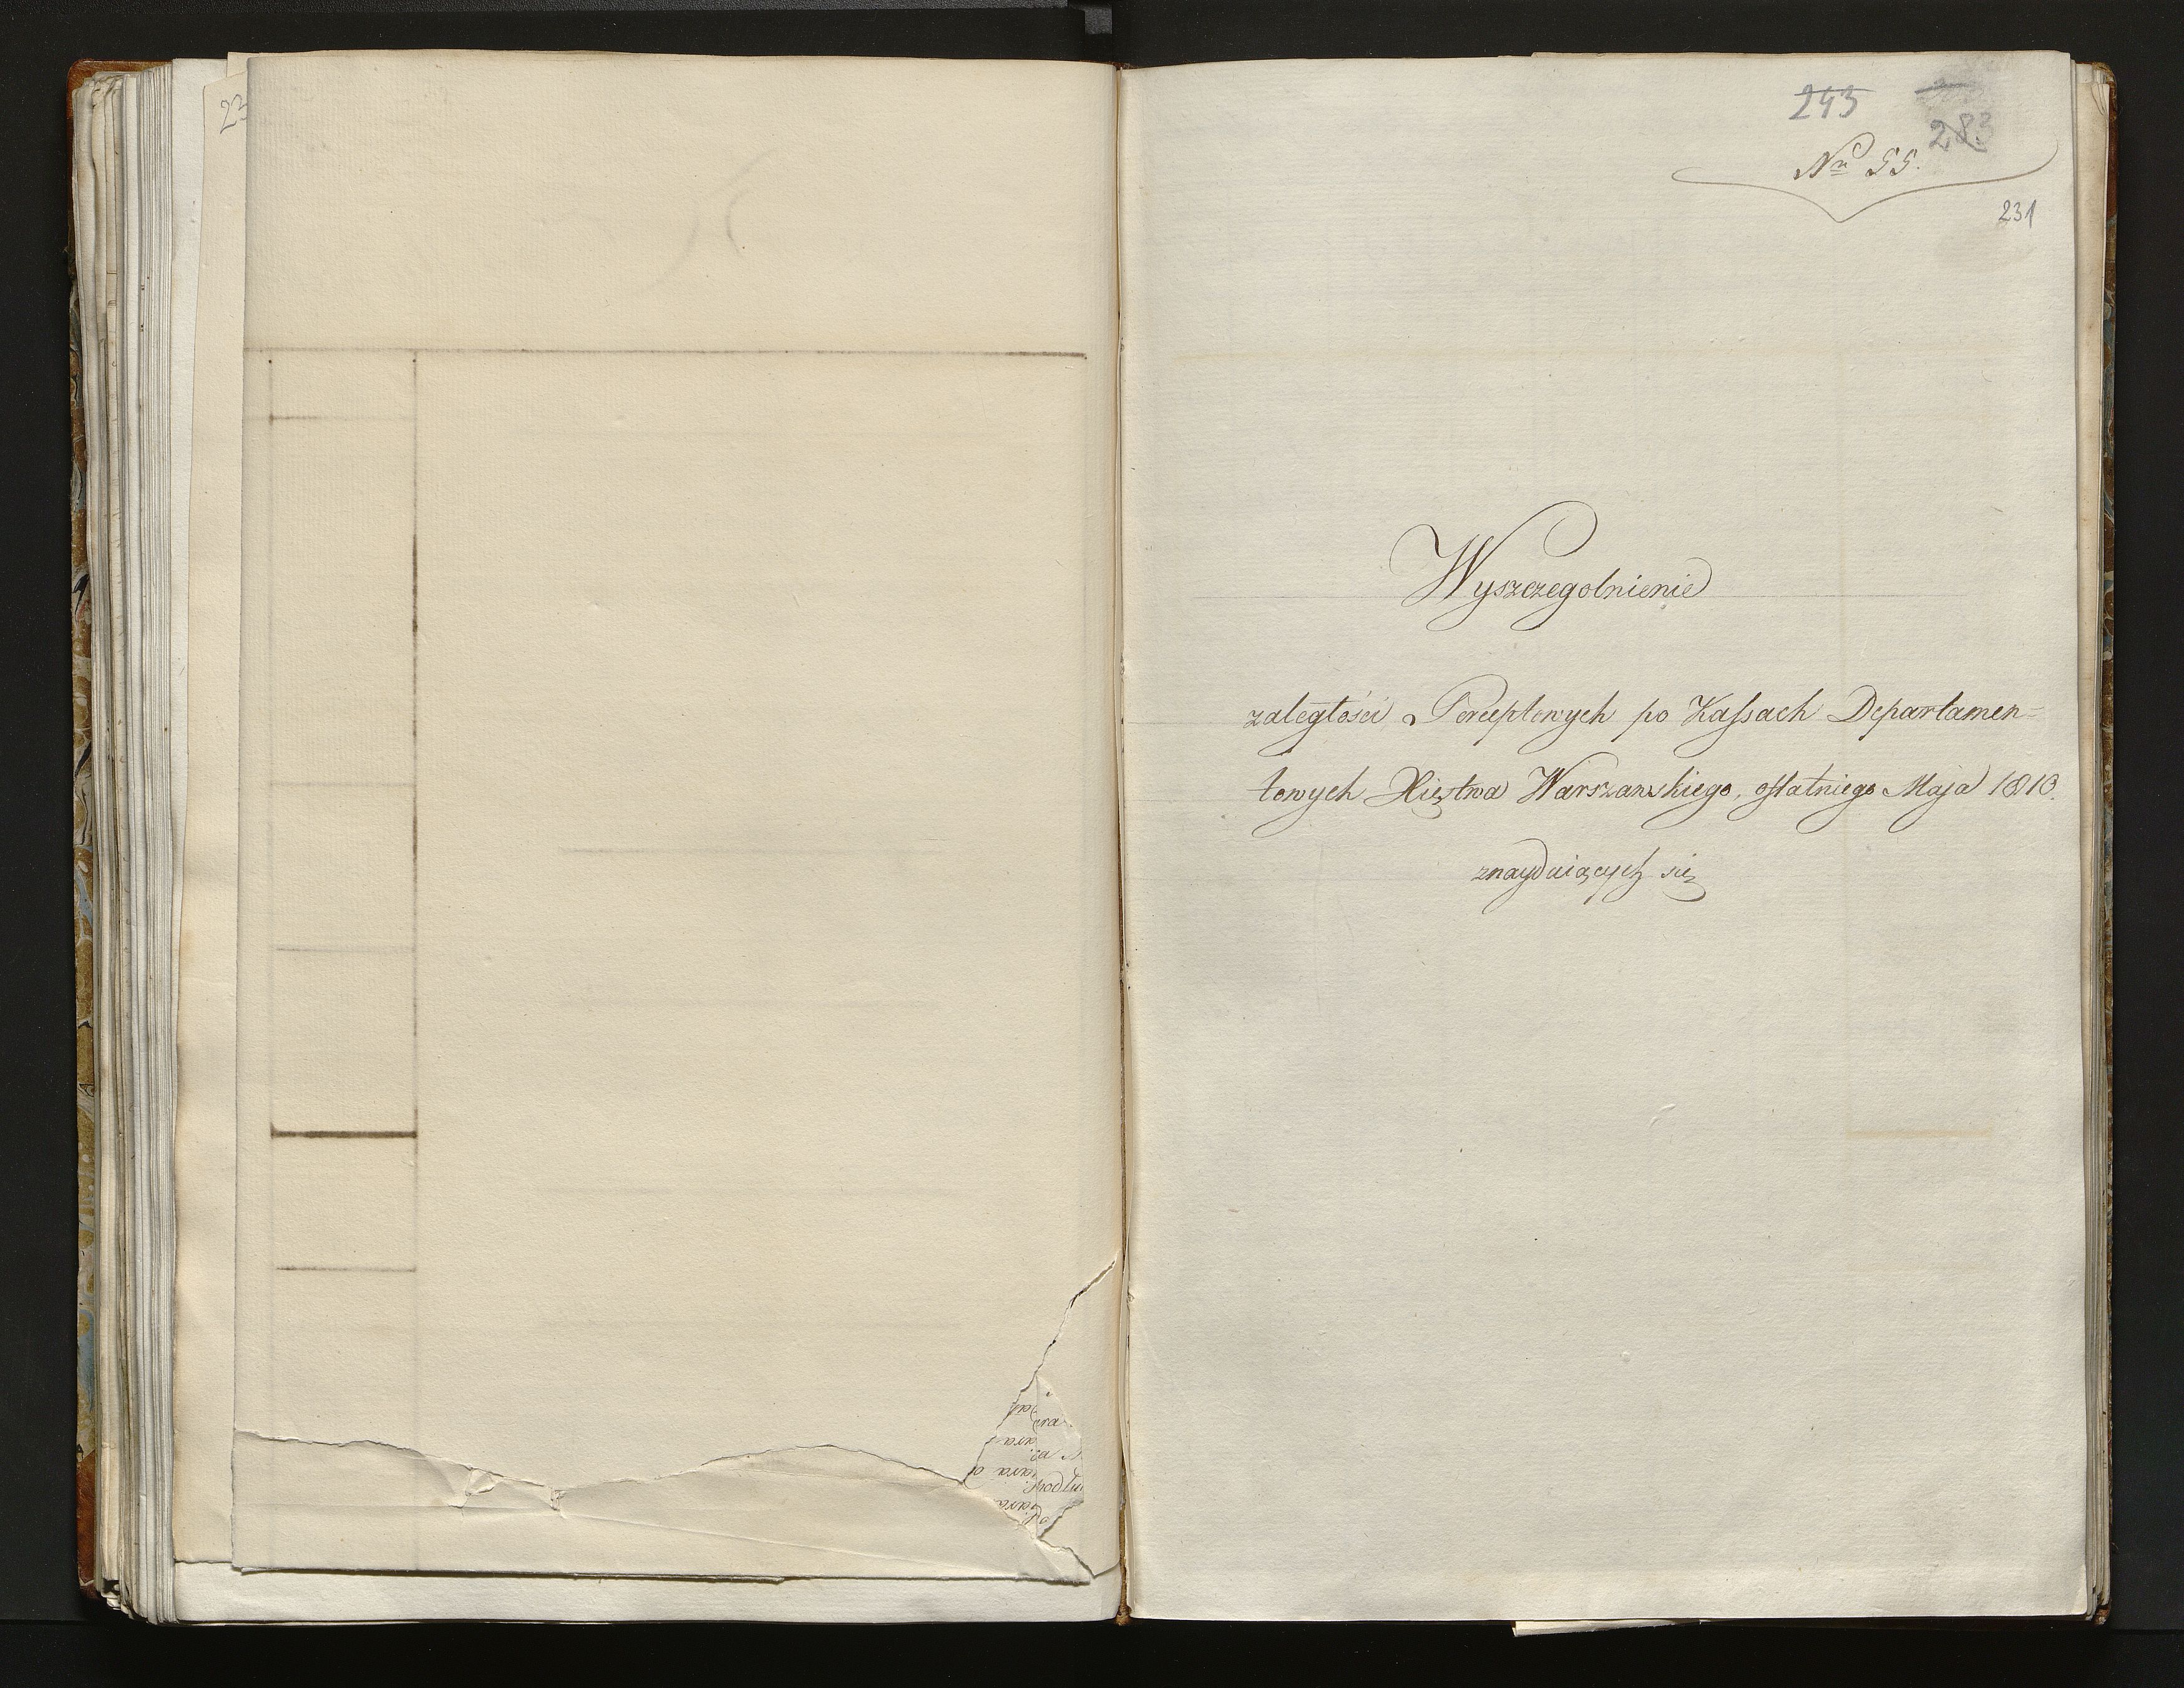 23
243
283
Nro 55.
231
Wyszczegolnienie
zaległości Perceptowych po Kassach Departamen=
towych Xięstwa Warszawskiego, ostatniego Maja 1810.
znayduiących się